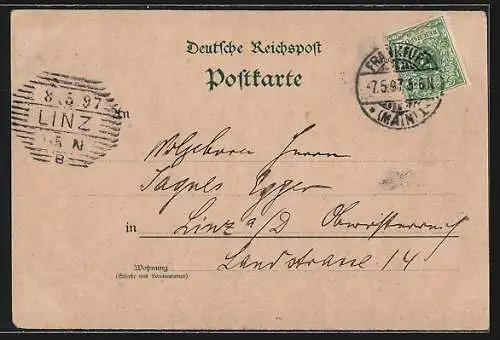 Deutsche Reichspost
Postkarte
FRANKFURT
7.5.97. 5-6N.
* (MAIN) 1 *
8.5.97
LINZ
5 N
B
An
Wolgeboren Herrn
Egger
in Linz a/D Oberösterreich
Landstrasse 14
Wohnung
(Straße und Hausnummer)